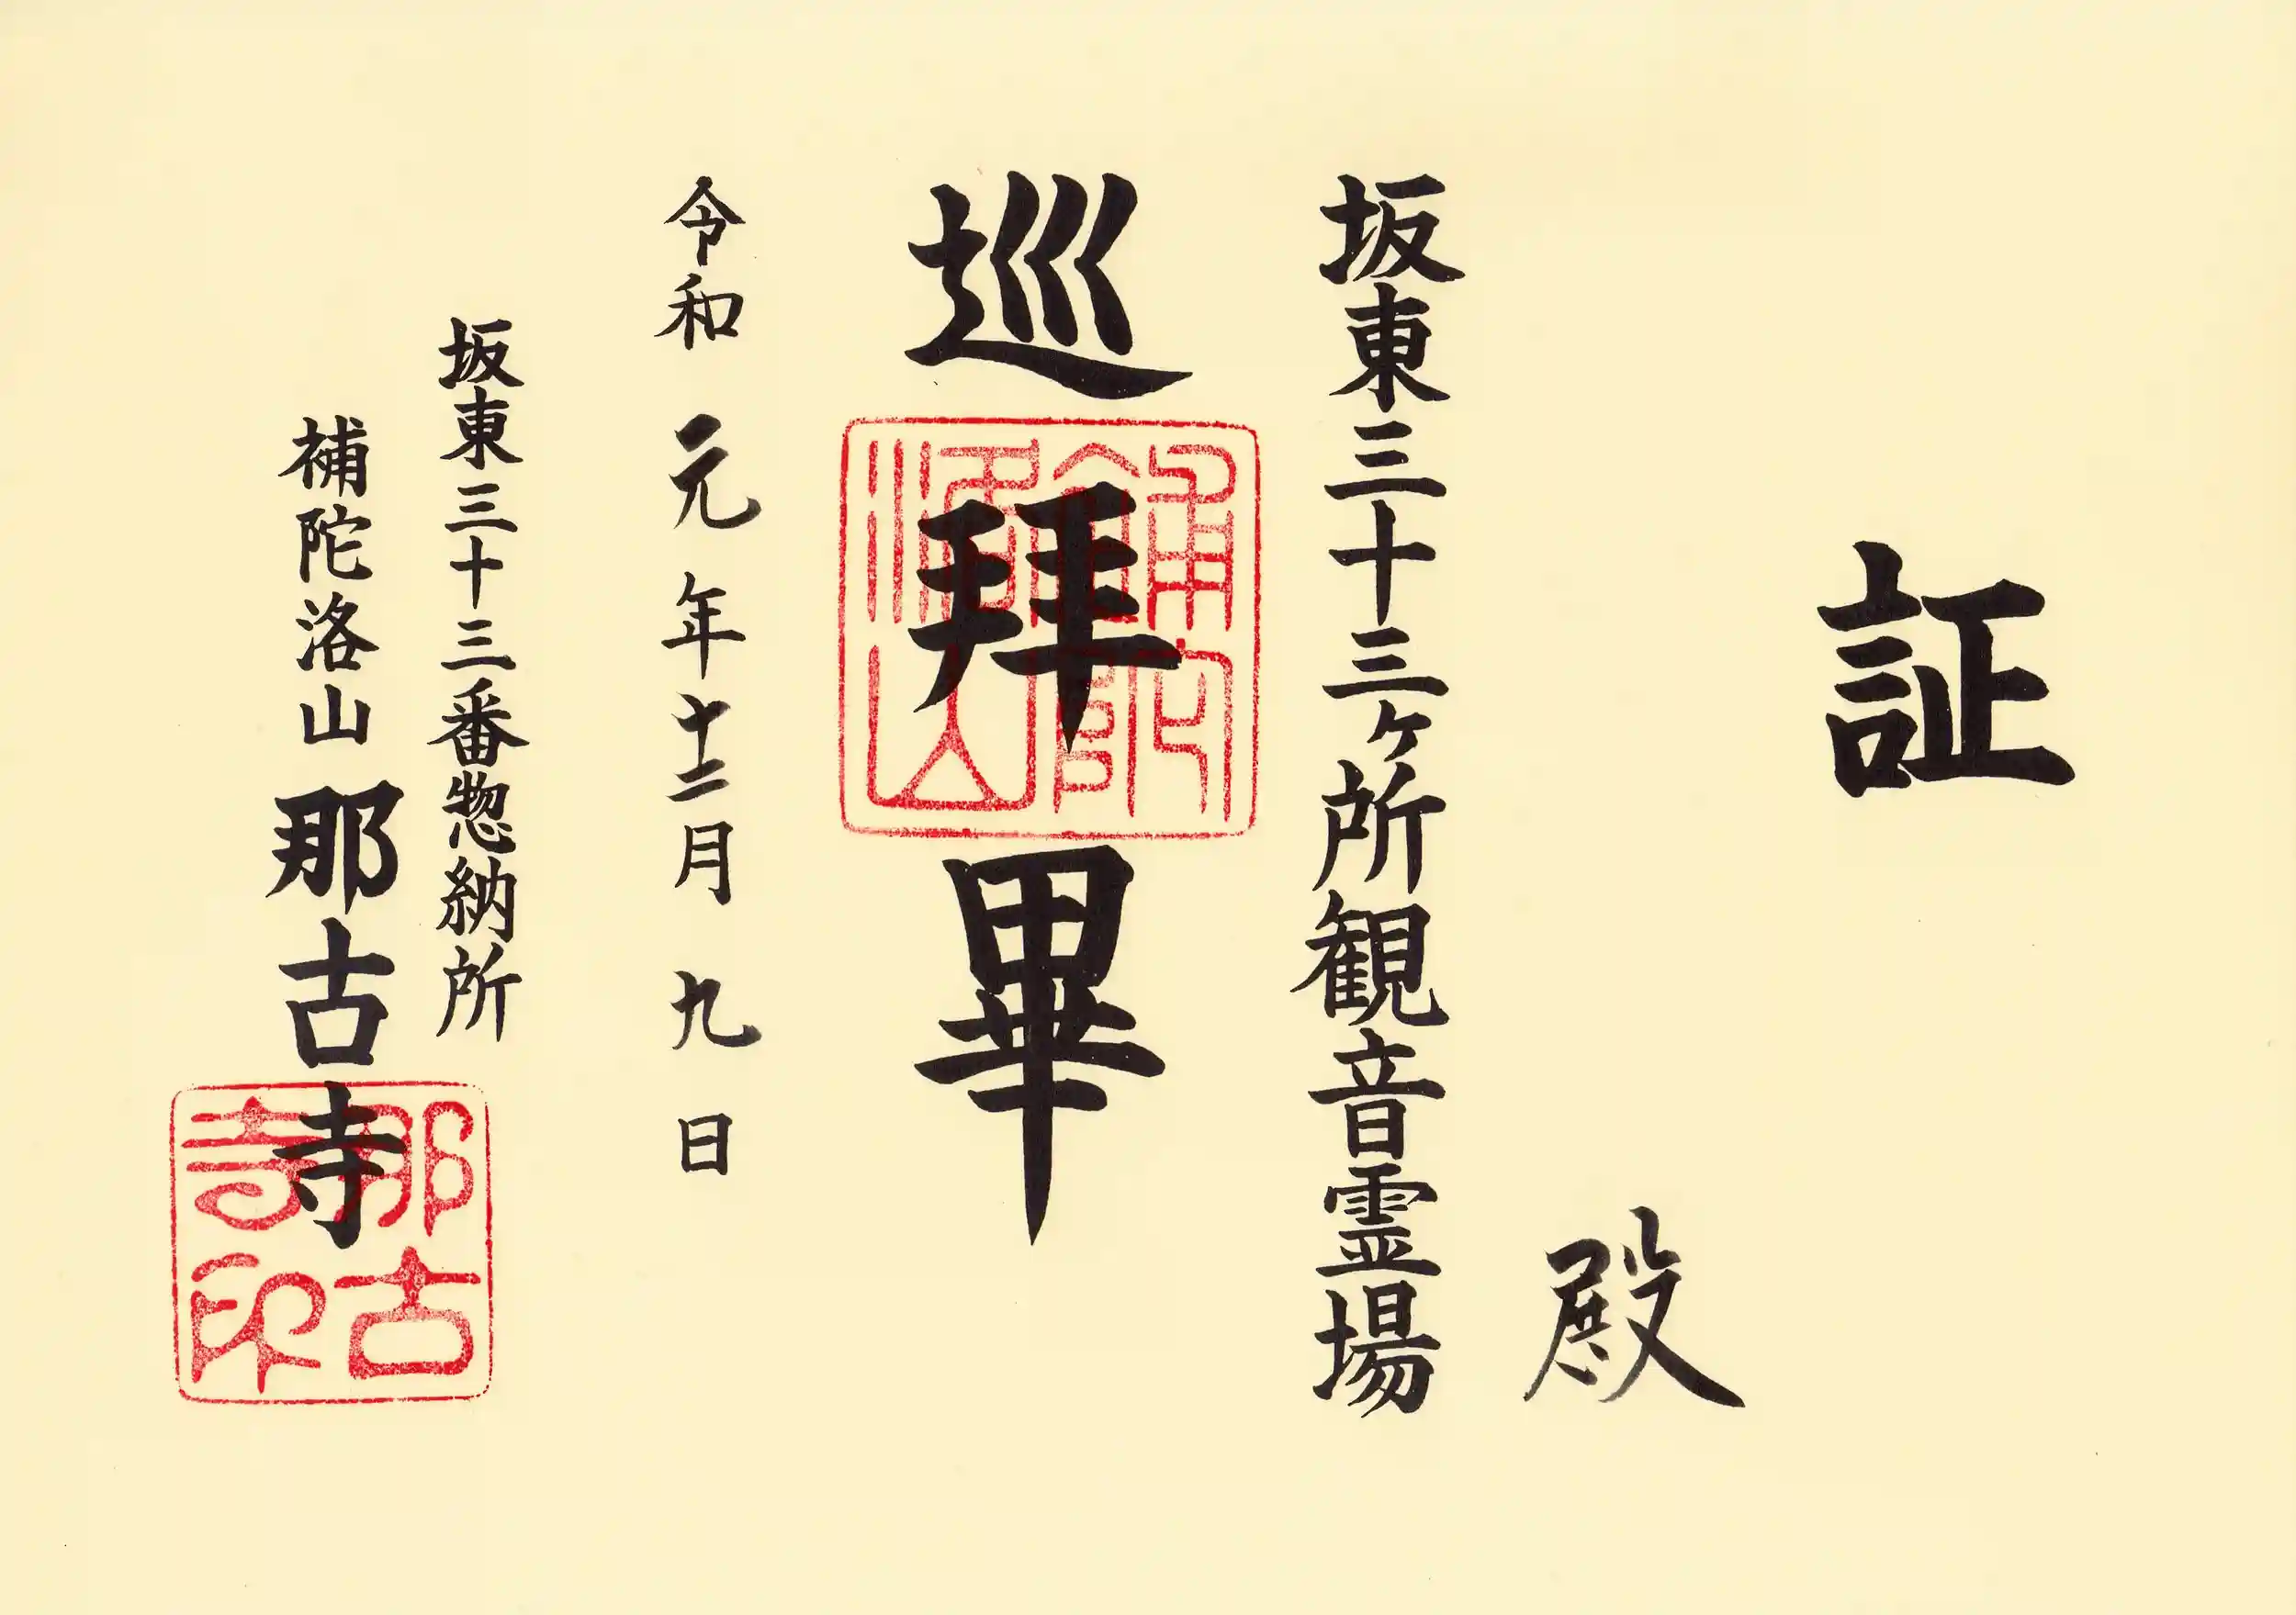 証
殿
坂東三十三ヶ所観音霊場
巡拜畢
令和元年十二月九日
坂東三十三番惣納所
補陀洛山那古寺
那古寺印